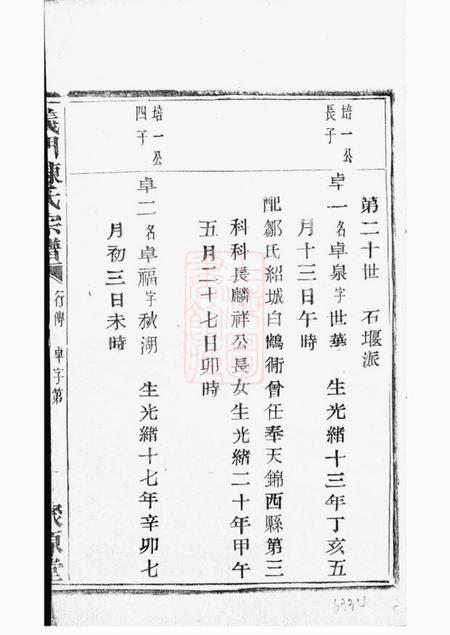 第二十世　石堰派
培一公長子
卓一名卓泉字世華　生光緒十三年丁亥五
月十三日午時
配鄒氏紹城白鶴衖曾任奉天錦西縣第三
科科長麟祥公長女生光緒二十年甲午
五月二十七日卯時
培一公四子
卓二名卓福字秋湖　生光緒十七年辛卯七
月初三日未時
義門陳氏宗譜
行傳　卓字第
聚原堂